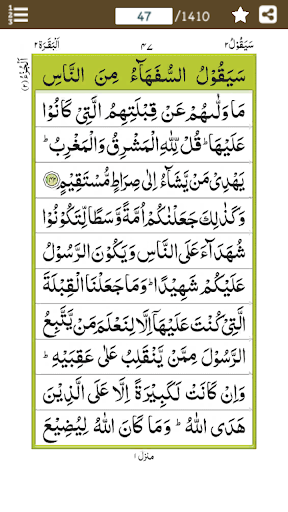 47 /1410
سَيَقُوْلُ ٢ ٤٧ اَلْبَقَرَة ٢
اَلْجُزْءُ (٢)
سَيَقُوْلُ السُّفَهَآءُ مِنَ النَّاسِ
مَا وَلّٰىهُمْ عَنْ قِبْلَتِهِمُ الَّتِيْ كَانُوْا
عَلَيْهَا ؕ قُلْ لِّلّٰهِ الْمَشْرِقُ وَالْمَغْرِبُ ؕ
يَهْدِيْ مَنْ يَّشَآءُ اِلٰى صِرَاطٍ مُّسْتَقِيْمٍ ﴿١٤٢﴾
وَكَذٰلِكَ جَعَلْنٰكُمْ اُمَّةً وَّسَطًا لِّتَكُوْنُوْا
شُهَدَآءَ عَلَى النَّاسِ وَيَكُوْنَ الرَّسُوْلُ
عَلَيْكُمْ شَهِيْدًا ؕ وَمَا جَعَلْنَا الْقِبْلَةَ
الَّتِيْ كُنْتَ عَلَيْهَاۤ اِلَّا لِنَعْلَمَ مَنْ يَّتَّبِعُ
الرَّسُوْلَ مِمَّنْ يَّنْقَلِبُ عَلٰى عَقِبَيْهِ ؕ
وَاِنْ كَانَتْ لَكَبِيْرَةً اِلَّا عَلَى الَّذِيْنَ
هَدَى اللّٰهُ ؕ وَمَا كَانَ اللّٰهُ لِيُضِيْعَ
منزل ١